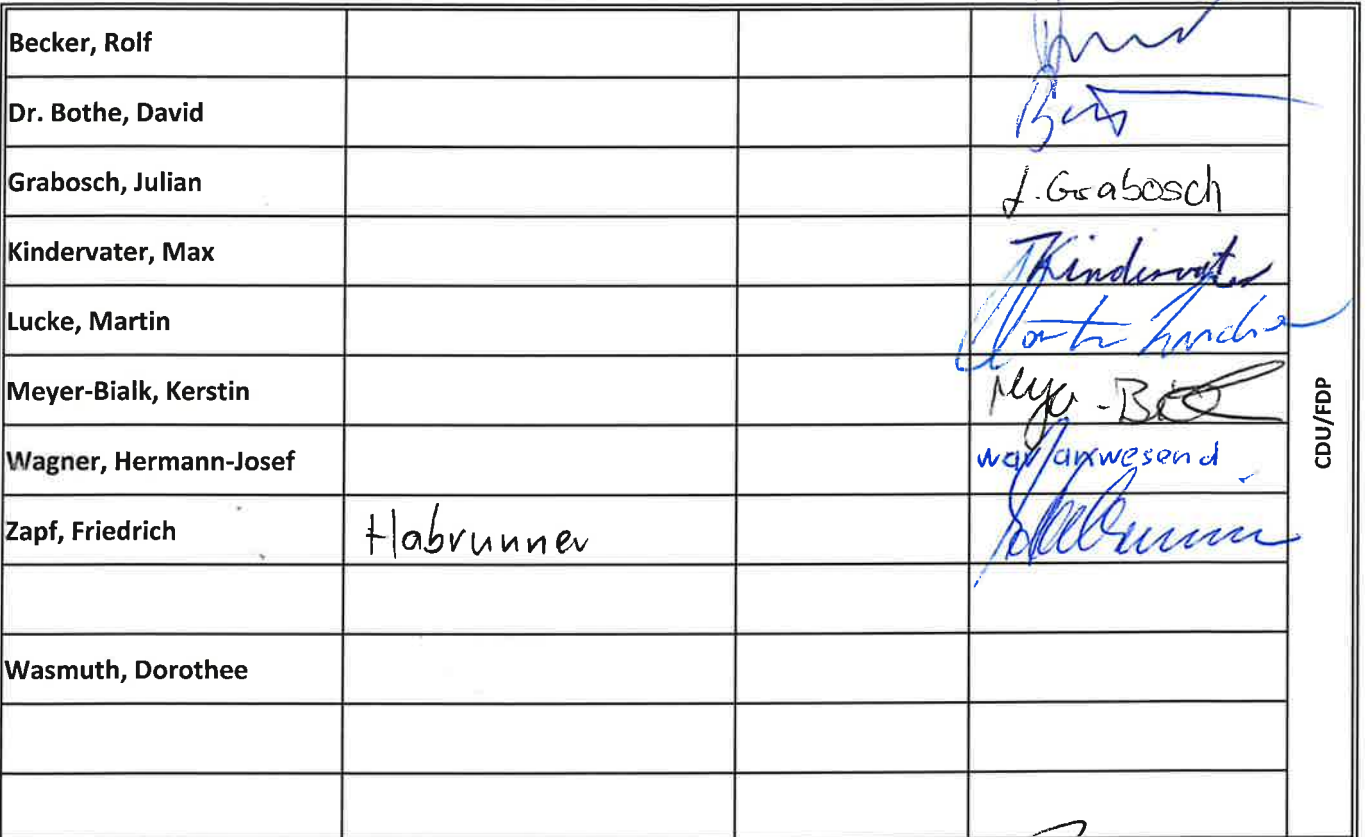 Becker, Rolf
Dr. Bothe, David
Grabosch, Julian J. Grabosch
Kindervater, Max Kindervater
Lucke, Martin
Meyer-Bialk, Kerstin
Wagner, Hermann-Josef war anwesend
Zapf, Friedrich Habrunner
Wasmuth, Dorothee
CDU/FDP